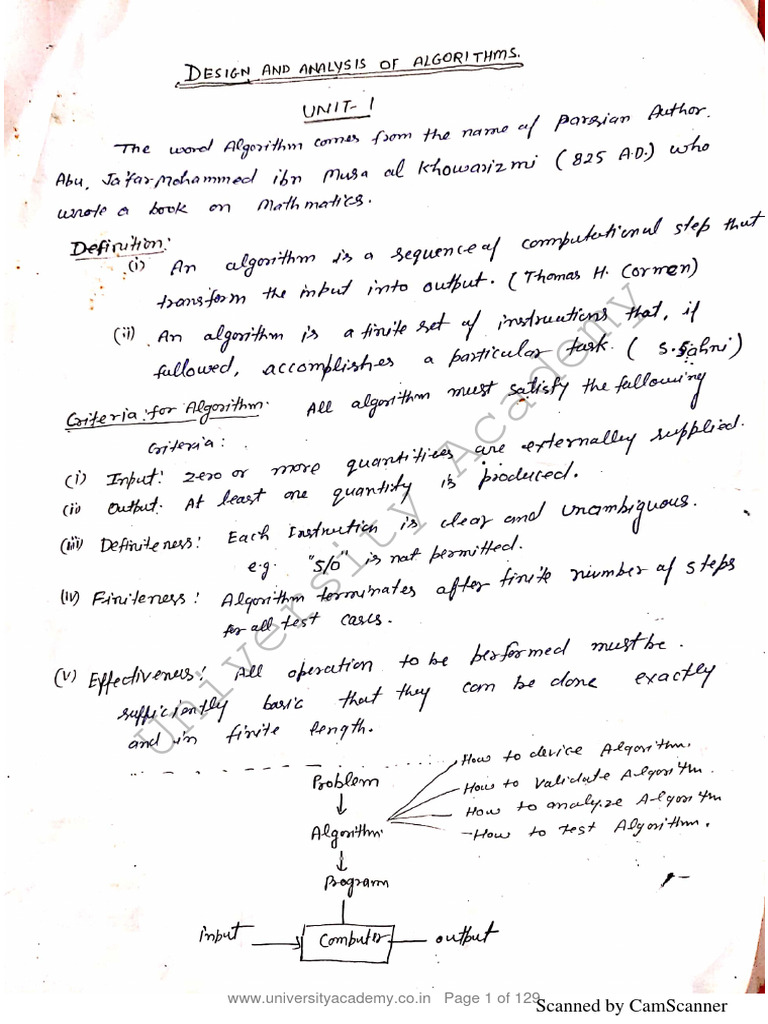 DESIGN AND ANALYSIS OF ALGORITHMS.
UNIT-1
The word Algorithm comes from the name of Parsian Author.
Abu, Jafar Mohammed ibn Musa al Khowarizmi (825 A.D.) who
wrote a book on Mathmatics.
Definition:
(i) An algorithm is a sequence of computational step that
transform the input into output. (Thomas H. Cormen)
(ii) An algorithm is a finite set of instructions that, if
followed, accomplishes a particular task. (S. Sahni)
Criteria for Algorithm: All algorithm must satisfy the following
Criteria:
(i) Input: Zero or more quantities are externally supplied.
(ii) Output: At least one quantity is produced.
(iii) Definiteness: Each Instruction is clear and unambiguous.
e.g. "5/0" is not permitted.
(iv) Finiteness: Algorithm terminates after finite number of steps
for all test cases.
(v) Effectiveness: All operation to be performed must be
sufficiently basic that they can be done exactly
and in finite length.
Problem
How to device Algorithm.
How to validate Algorithm.
How to analyze Algorithm
How to test Algorithm.
Algorithm
Program
input Computer output
University Academy
www.universityacademy.co.in Page 1 of 129
Scanned by CamScanner